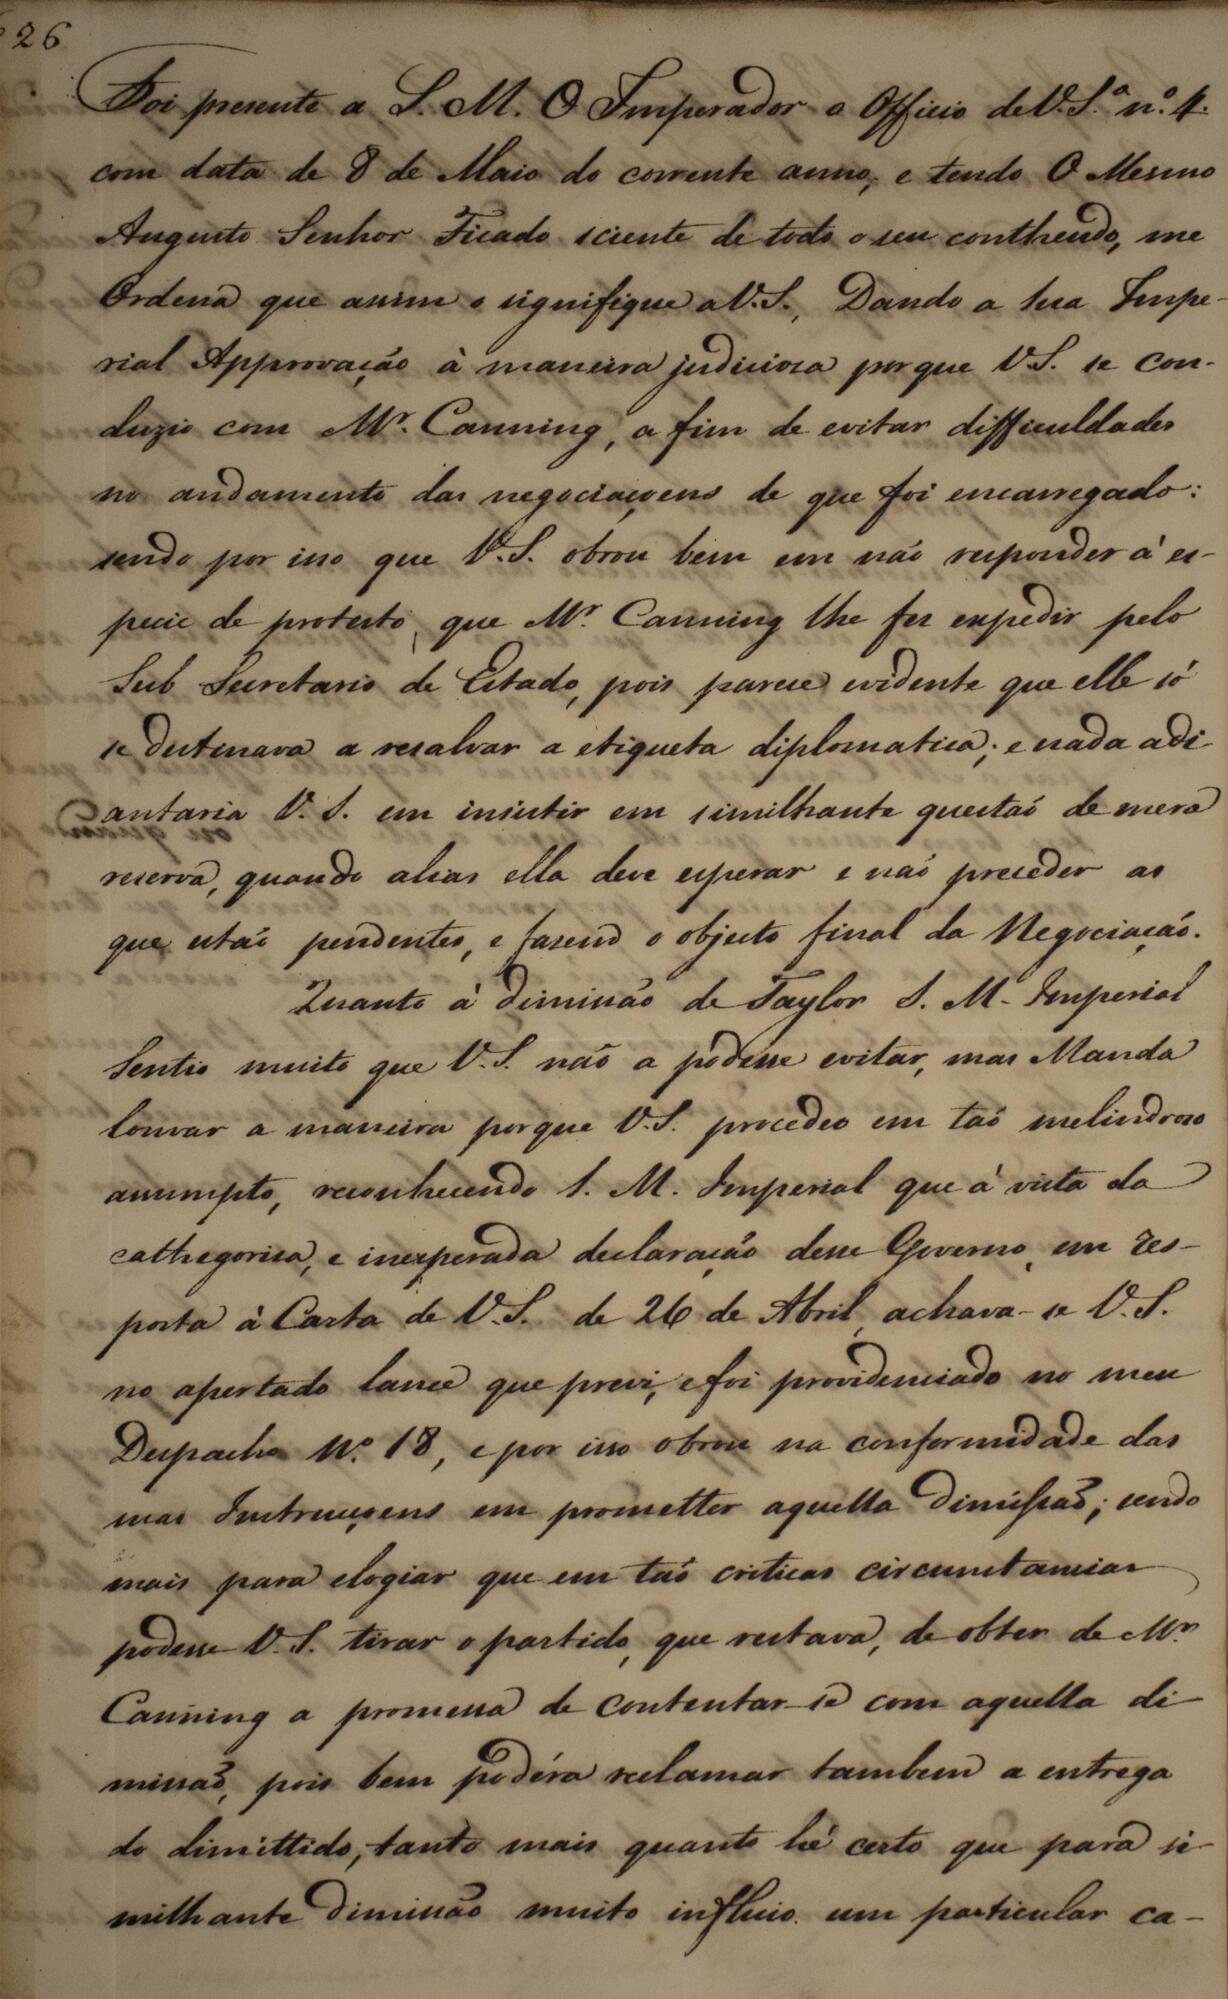 26
Foi presente a S. M. O Imperador o Officio de V. S.ª n.º 4.
com data de 8 de Maio do corrente anno, e tendo O Mesmo
Augusto Senhor Ficado sciente de todo o seu contheudo, me
Ordena que assim o signifique a V. S., Dando a Sua Impe-
rial Approvação à maneira judiciosa porque V. S. se con-
duzio com Mr. Canning, a fim de evitar difficuldades
no andamento das negociaçoens de que foi encarregado:
sendo por isso que V. S. obrou bem em não responder á es-
pecie de protesto, que Mr. Canning lhe fez expedir pelo
Sub Secretario de Estado, pois parece evidente que elle só
se destinava a resalvar a etiqueta diplomatica; e nada adi-
antaria V. S. em insistir em similhante questaõ de mera
reserva, quando alias ella deve esperar e naõ preceder as
que estaõ pendentes, e fasem o objecto final da Negociaçaõ.
Quanto á dimissão de Taylor S. M. Imperial
Sentio muito que V. S. naõ a podesse evitar, mas Manda
louvar a maneira porque V. S. procedeo em taõ melindroso
assumpto, reconhecendo S. M. Imperial que á vista da
cathegorica, e inexperada declaração desse Governo, em res-
posta à Carta de V. S. de 26 de Abril, achava-se V. S.
no apertado lance que previ, e foi providenciado no meu
Despacho N.º 18, e por isso obrou na conformidade das
suas Instrucçoens em prometter aquella dimissaõ; sendo
mais para elogiar que em taõ criticas circumstancias
podesse V. S. tirar o partido, que restava, de obter de Mr.
Canning a promessa de contentar-se com aquella di-
missaõ, pois bem podéra reclamar tambem a entrega
do dimittido, tanto mais quanto hé certo que para si-
milhante dimissão muito influio um particular ca-